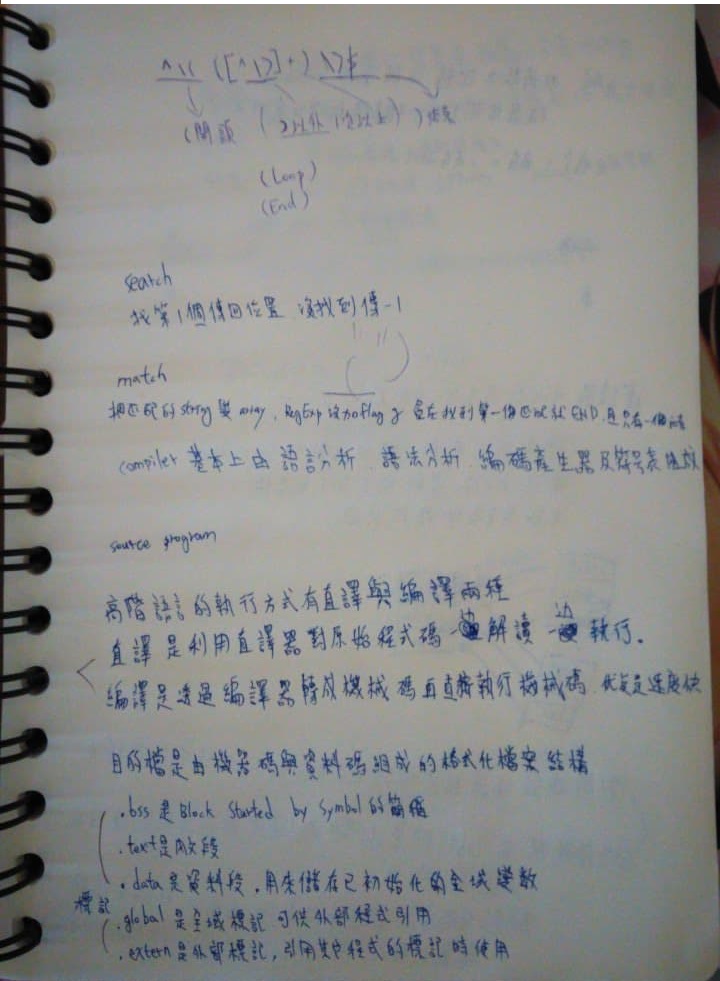 ^\( ([^\)]+) \)$
(開頭 ( )以外 1次以上) )結尾
(Loop)
(End)
search
找第1個傳回位置 沒找到傳-1
match
把匹配的string 變 array, RegExp 沒加flag g 會在找到第一個匹配就END, 且只有一個
compiler 基本上由 語言分析、語法分析、編碼產生器及符號表組成
source program
高階語言的執行方式有直譯與編譯兩種
直譯是利用直譯器對原始程式碼一邊解讀一邊執行。
編譯是透過編譯器轉成機械碼再直接執行機械碼,優點是速度快
目的檔是由機器碼與資料碼組成的格式化檔案結構
.bss 是 Block Started by Symbol 的簡稱
.text是內文段
.data 是資料段,用來儲存已初始化的全域變數
標記
.global 是全域標記 可供外部程式引用
.extern是外部標記,引用其它程式的標記時使用